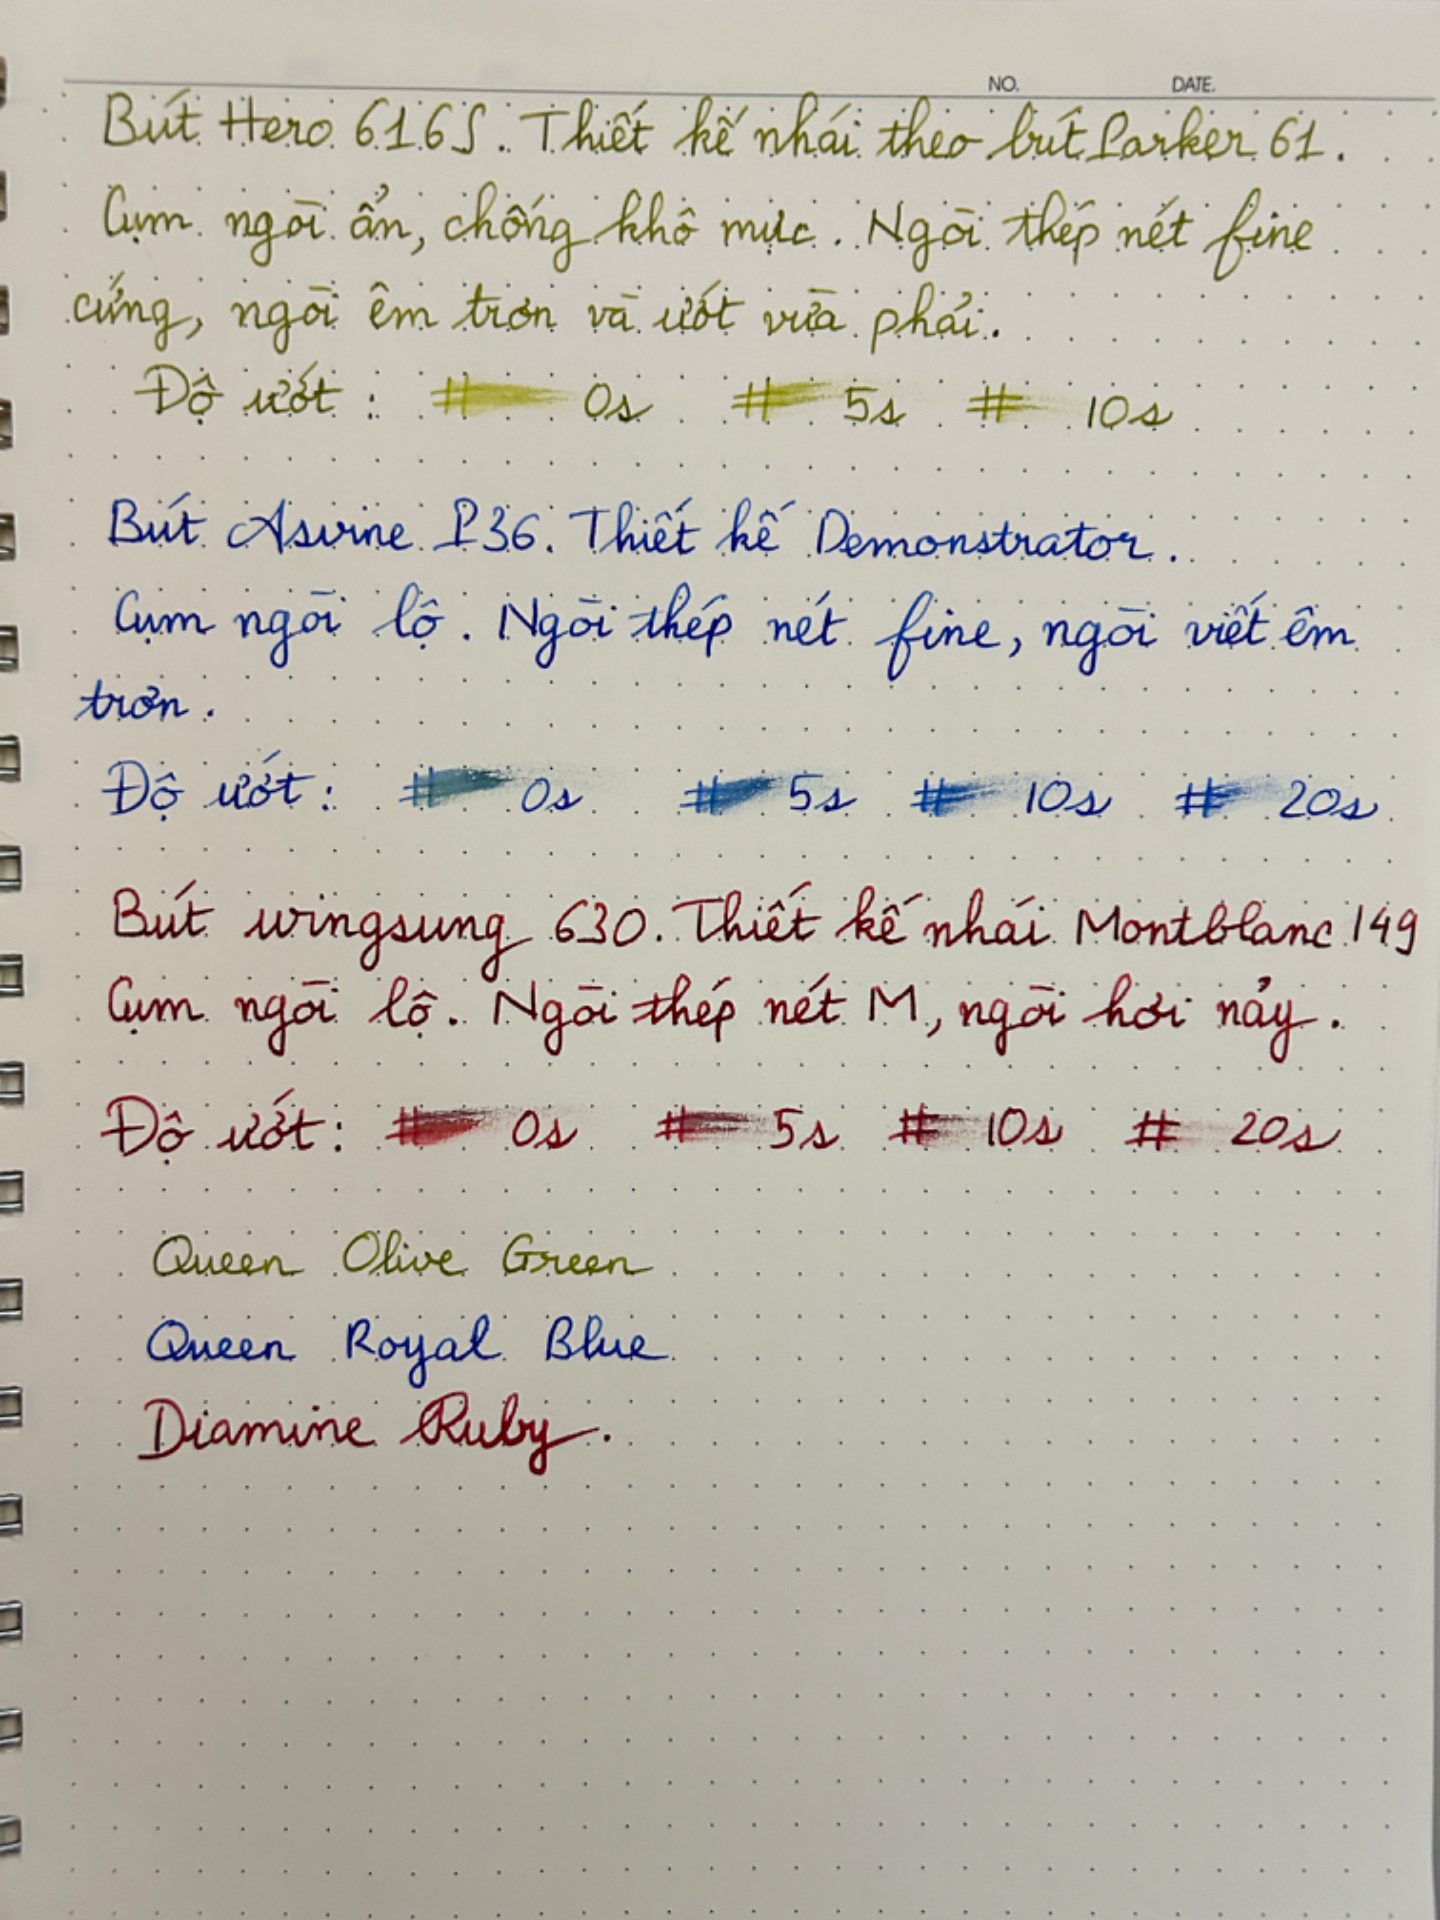 NO. DATE.
Bút Hero 616S. Thiết kế nhái theo bút Parker 61.
Cụm ngòi ẩn, chống khô mực. Ngòi thép nét fine
cứng, ngòi êm trơn và ướt vừa phải.
Độ ướt: # 0s # 5s # 10s
Bút Asvine P36. Thiết kế Demonstrator.
Cụm ngòi lộ. Ngòi thép nét fine, ngòi viết êm
trơn.
Độ ướt: # 0s # 5s # 10s # 20s
Bút wingsung 630. Thiết kế nhái Montblanc 149
Cụm ngòi lộ. Ngòi thép nét M, ngòi hơi nảy.
Độ ướt: # 0s # 5s # 10s # 20s
Queen Olive Green
Queen Royal Blue
Diamine Ruby.